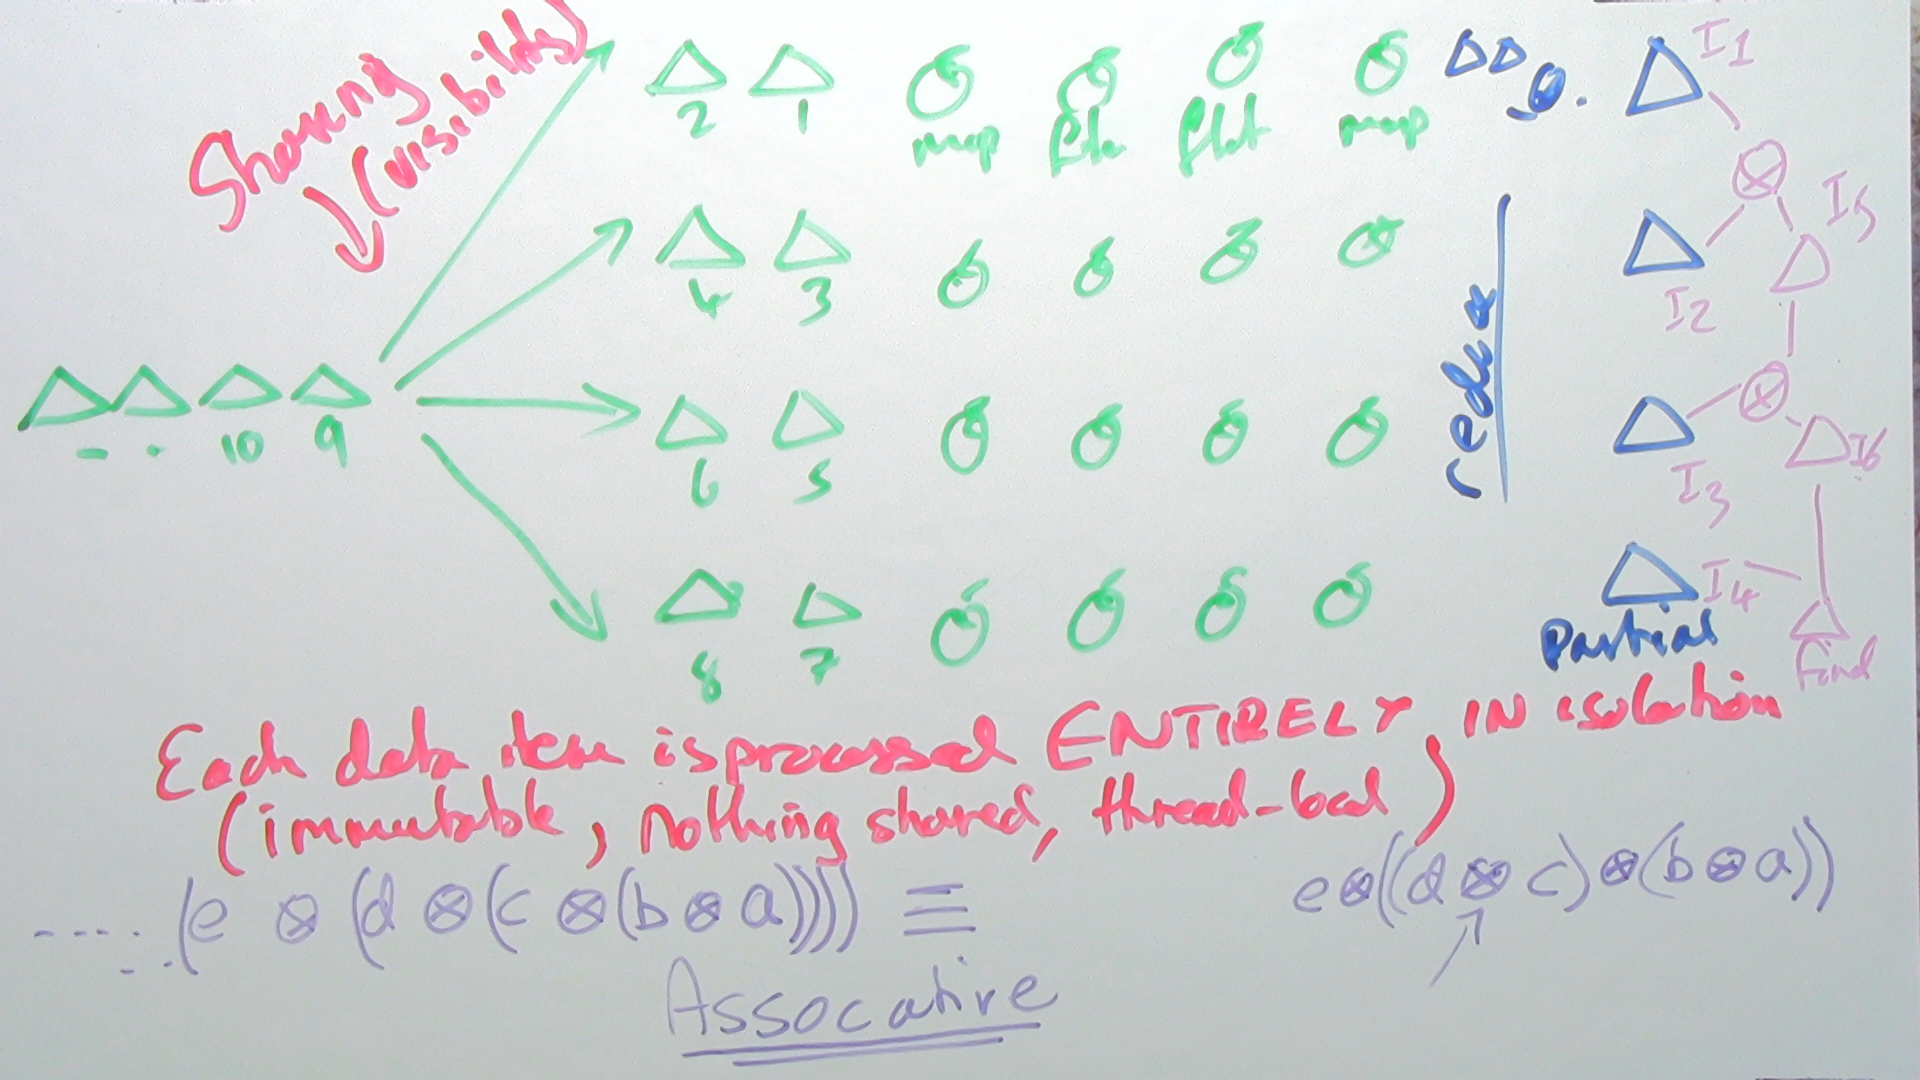 Sharing
(visibility)
I1
2 1
map filte flat map
I5
4 3
I2
reduce
10 9
6 5
I6
I3
I4
8 7
Partial
Final
Each data item is processed ENTIRELY IN isolation
(immutable, nothing shared, thread-local)
.....(e ⊗ (d ⊗ (c ⊗ (b ⊗ a)))) ≡ e⊗((d ⊗ c) ⊗ (b ⊗ a))
Assocative